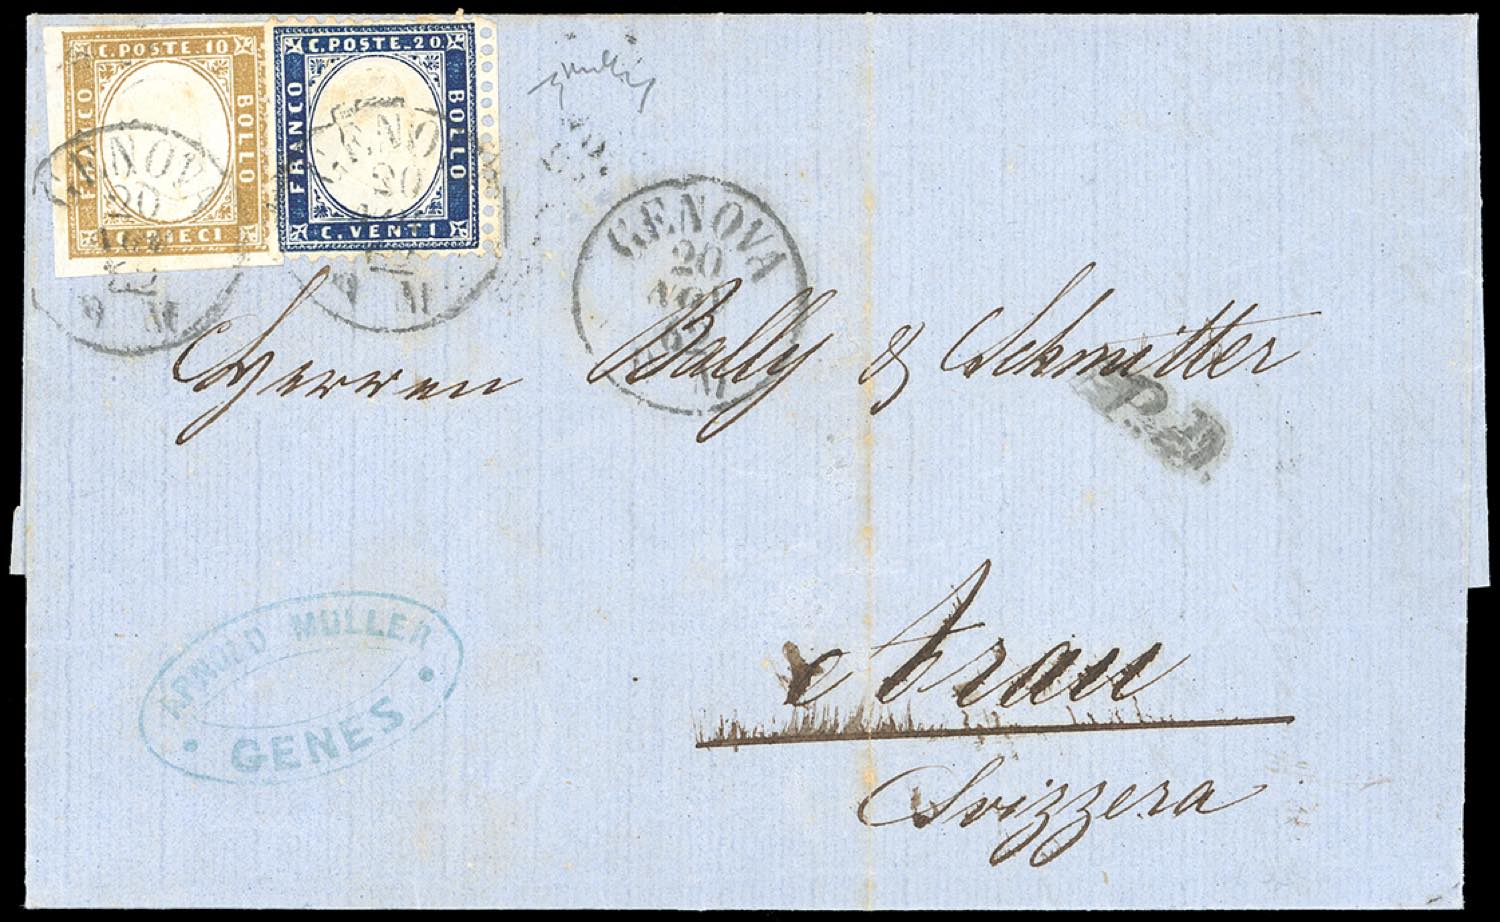 C. POSTE. 10
FRANCO
BOLLO
C. DIECI
C. POSTE. 20.
FRANCO
BOLLO
C. VENTI
GENOVA
20
9 M
GENOVA
20
9 M
GENOVA
20
NOV
62
M
Herren Bally & Schmitter
P.D.
Arau
Svizzera
ARNOLD MULLER
GENES